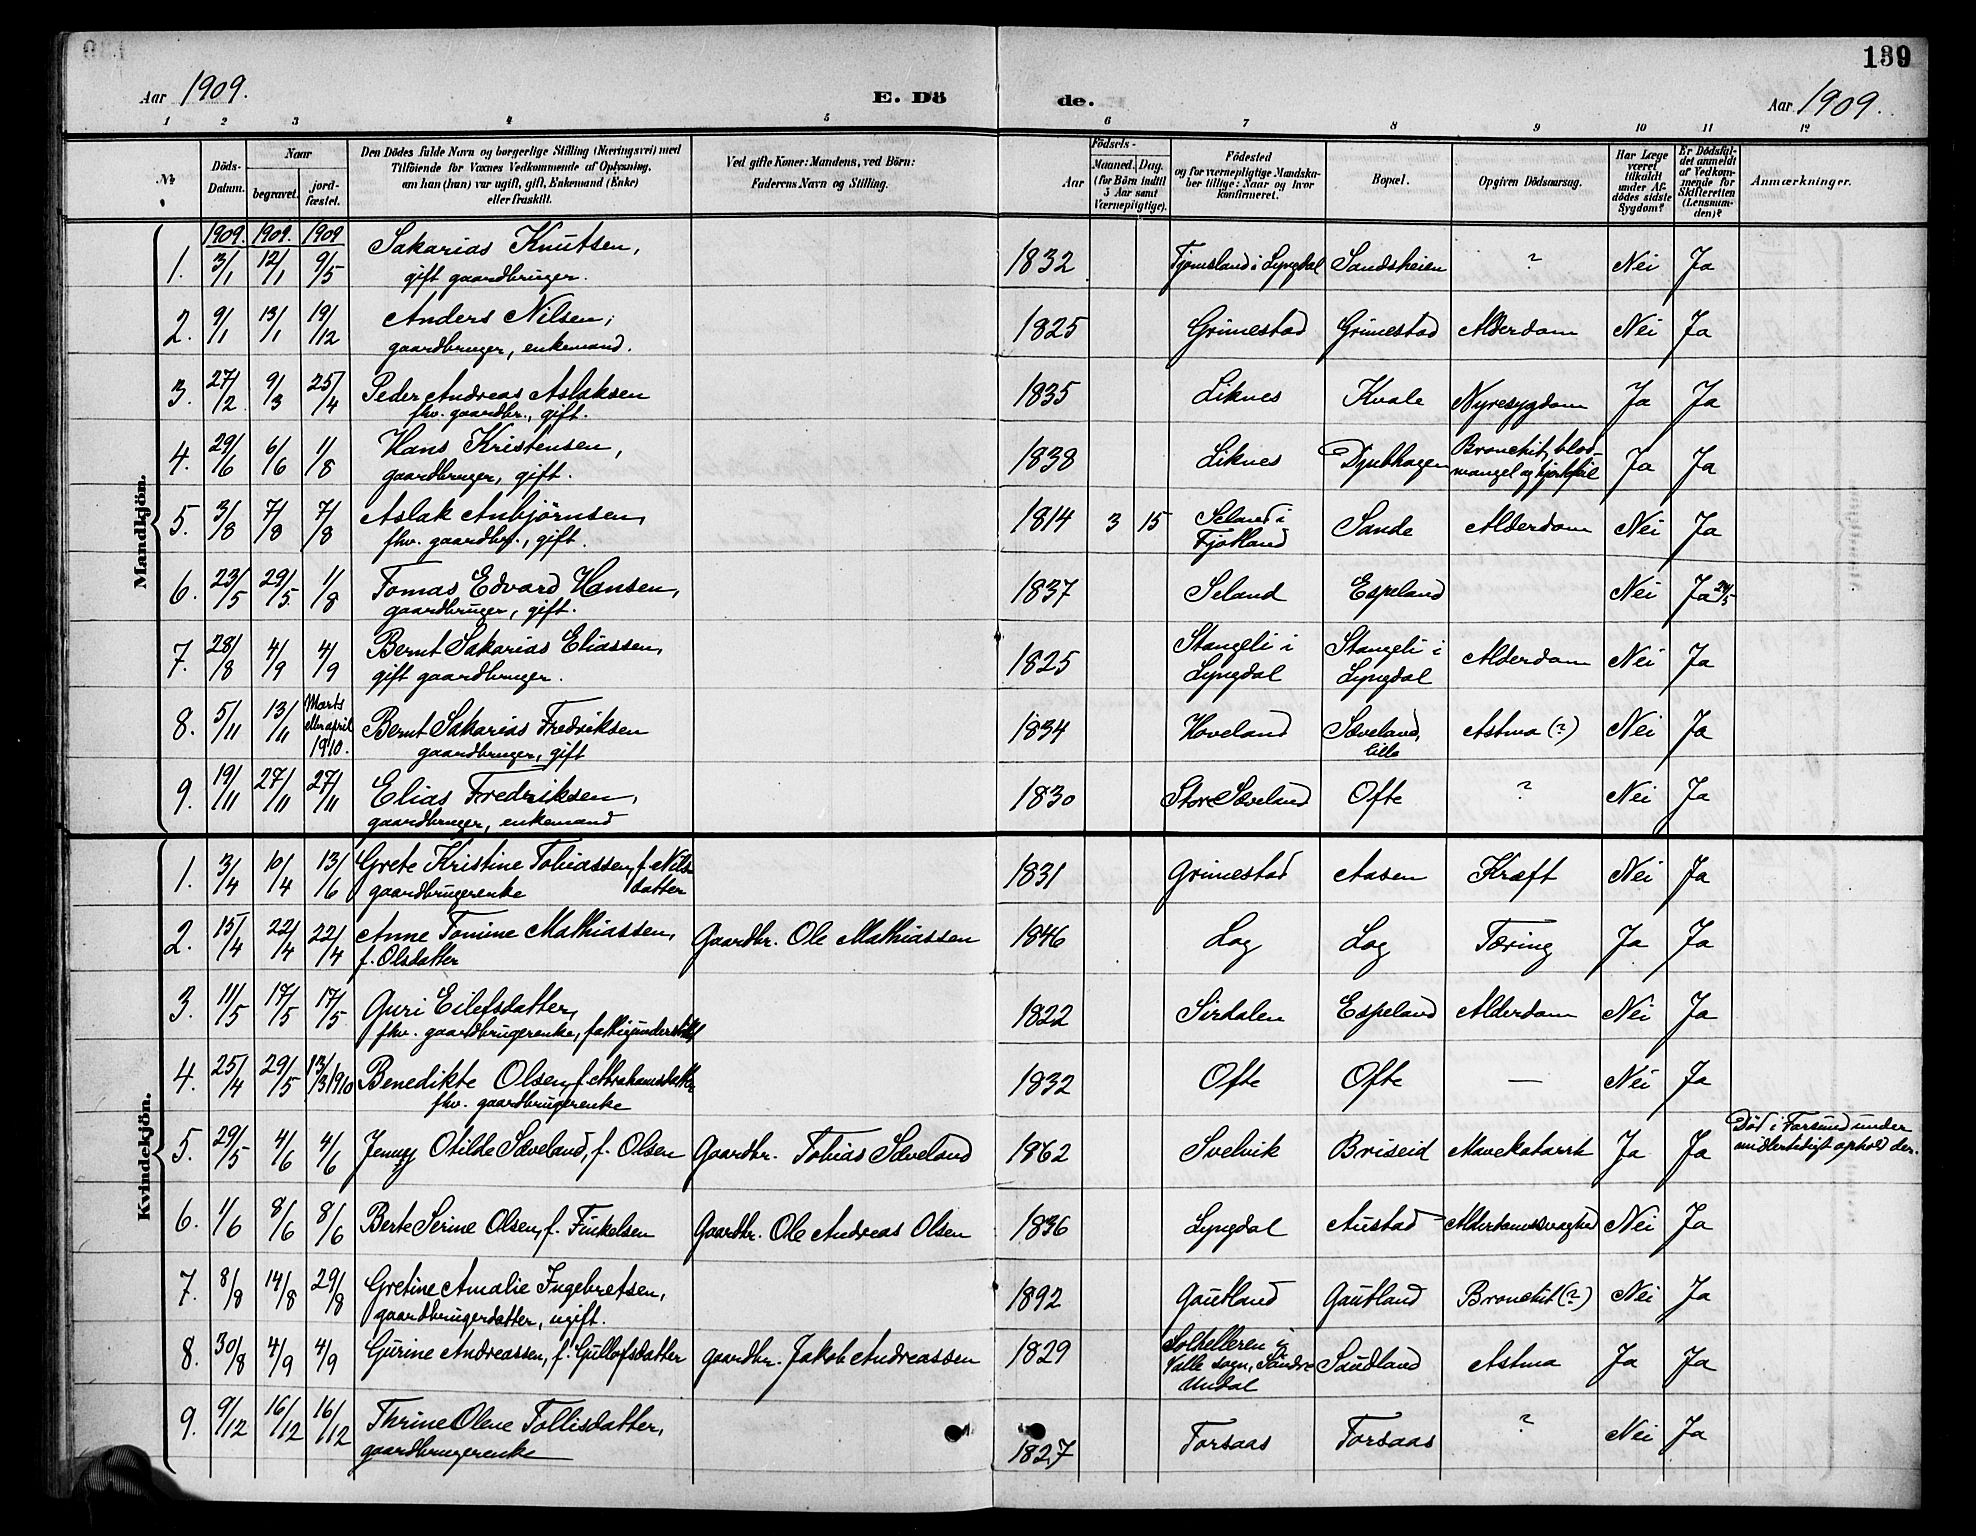 139
Aar 1909.
E. Döde.
Aar 1909.
1 2 3 4 5 6 7 8 9 10 11 12
№
Döds-Datum.
Naar
begravet.
jordfæstet.
Den Dödes fulde Navn og borgerlige Stilling (Næringsvei) med
Tilföiende for Voxnes Vedkommende af Oplysning,
om han (hun) var ugift, gift, Enkemand (Enke)
eller fraskilt.
Ved gifte Koner: Mandens, ved Börn:
Faderens Navn og Stilling.
Födsels-
Aar
Maaned. Dag.
(for Börn indtil
5 Aar samt
Værnepligtige).
Födested
og for værnepligtige Mandskaber tillige: Naar og hvor
konfirmeret.
Bopæl.
Opgiven Dödsaarsag.
Har Læge
været
tilkaldt
under Afdödes sidste
Sygdom?
Er Dödsfaldet anmeldt
af Vedkommende for
Skifteretten
(Lensmanden)?
Anmærkninger.
Mandkjön.
1909. 1909. 1909
1. 3/1 12/1 9/5 Sakarias Knutsen, gift gaardbruger. 1832 Fjomsland i Lyngdal Sandsheien ? Nei Ja
2. 9/1 13/1 19/12 Anders Nilsen, gaardbruger, enkemand. 1825 Grimestad Grimestad Alderdom Nei Ja
3. 27/2 9/3 25/4 Peder Andreas Aslaksen fhv. gaardbr., gift. 1835 Liknes Kvale Nyresygdom Ja Ja
4. 29/6 6/6 1/8 Hans Kristensen, gaardbruger, gift. 1838 Liknes Djubhagen Bronchit, blodmangel og hjertefeil Ja Ja
5. 3/8 7/8 7/8 Aslak Anbjörnsen, fhv. gaardbr., gift. 1814 3 15 Seland i Fjotland Sande Alderdom Nei Ja
6. 23/5 29/5 1/8 Tomas Edvard Hansen, gaardbruger, gift. 1837 Seland Espeland Nei Ja
7. 28/8 4/9 4/9 Bernt Sakarias Eliassen, gift gaardbruger. 1825 Stangeli i Lyngdal Stangeli i Lyngdal Alderdom Nei Ja
8. 5/11 13/11 Marts eller april 1910. Bernt Sakarias Fredriksen gaardbruger, gift 1834 Hoveland Sæveland, lille Astma (?) Nei Ja
9. 19/11 27/11 27/11 Elias Fredriksen, gaardbruger, enkemand 1830 Store Sæveland Ofte ? Nei Ja
Kvindekjön.
1. 3/4 10/4 13/6 Grete Kristine Tobiassen, f. Nilsdatter gaardbrugerenke 1831 Grimestad Aasen Kræft Nei Ja
2. 15/4 22/4 22/4 Anne Tomine Mathiassen, f. Olsdatter Gaardbr. Ole Mathiassen 1846 Log Log Tæring Ja Ja
3. 11/5 17/5 17/5 Guri Eilefsdatter, fhv. gaardbrugerenke, fattigunderstöttet 1822 Sirdalen Espeland Alderdom Nei Ja
4. 25/4 29/5 13/3 1910 Benedikte Olsen, f. Abrahamsdatter fhv. gaardbrugerenke 1832 Ofte Ofte — Nei Ja
5. 29/5 4/6 4/6 Jenny Otilde Sæveland, f. Olsen Gaardbr. Tobias Sæveland 1862 Svelvik Briseid Mavekatarrh Ja Ja Död i Farsund under midlertidigt ophold der.
6. 1/6 8/6 8/6 Berte Serine Olsen, f. Finkelsen Gaardbr. Ole Andreas Olsen 1836 Lyngdal Austad Alderdomssvaghed Nei Ja
7. 8/8 14/8 29/8 Gretine Amalie Ingebretsen, gaardbrugerdatter, ugift. 1892 Gautland Gautland Bronchit (?) Nei Ja
8. 30/8 4/9 4/9 Gurine Andreassen, f. Gullofsdatter gaardbr. Jakob Andreassen 1829 Solhelleren i Valle sogn, Söndre Undal Saudland Astma Ja Ja
9. 9/12 16/12 16/12 Thrine Olene Tollisdatter, gaardbrugerenke 1827 Torsaas Torsaas ? Nei Ja